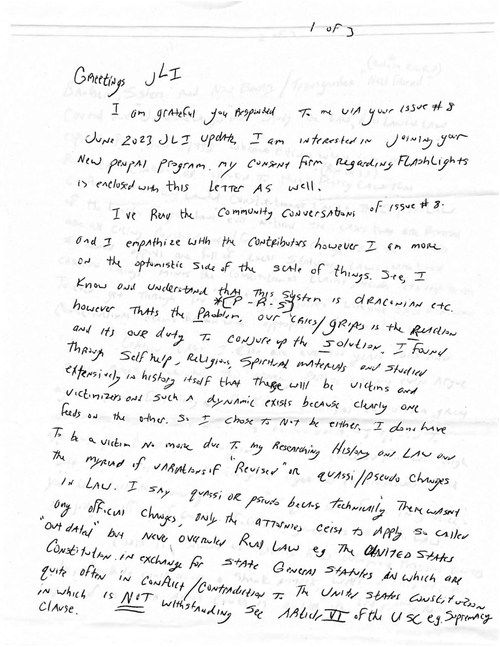 1 of 3
Greetings JLI
I am grateful you Responded To me via your issue #8
June 2023 JLI update, I am interested in joining your
New penpal program. my consent form Regarding Flashlights
is enclosed with this Letter As well.
I've Read the Community Conversations of issue #8.
and I empathize with the Contributors however I am more
on the optomistic side of the scale of things. See, I
Know and understand that This System is draconian etc.
*[P-R-S]
however thats the Problem, our "cries/gripes is the Reaction
and its our duty To conjure up the Solution. I found
through Self help, Religion, Spiritual materials and studied
extensively in history itself that There will be victims and
victimizers and such a dynamic exists because clearly one
feeds on the other. So I chose to Not be either. I dont have
To be a victim No more due To my Researching History and Law and
the myriad of variations if "Revised" or quassi/pseudo changes
in Law. I say quassi or pseudo because Technically There wasnt
any official changes, only the attornies ceist to Apply so called
"outdated" but Never overruled Real Law eg The United States
Constitution in exchange for State General Statutes in which are
quite often in Conflict/Contradiction To The United States Constitution
in which is NOT withstanding See Article VI of the USC eg. Supremacy
Clause.